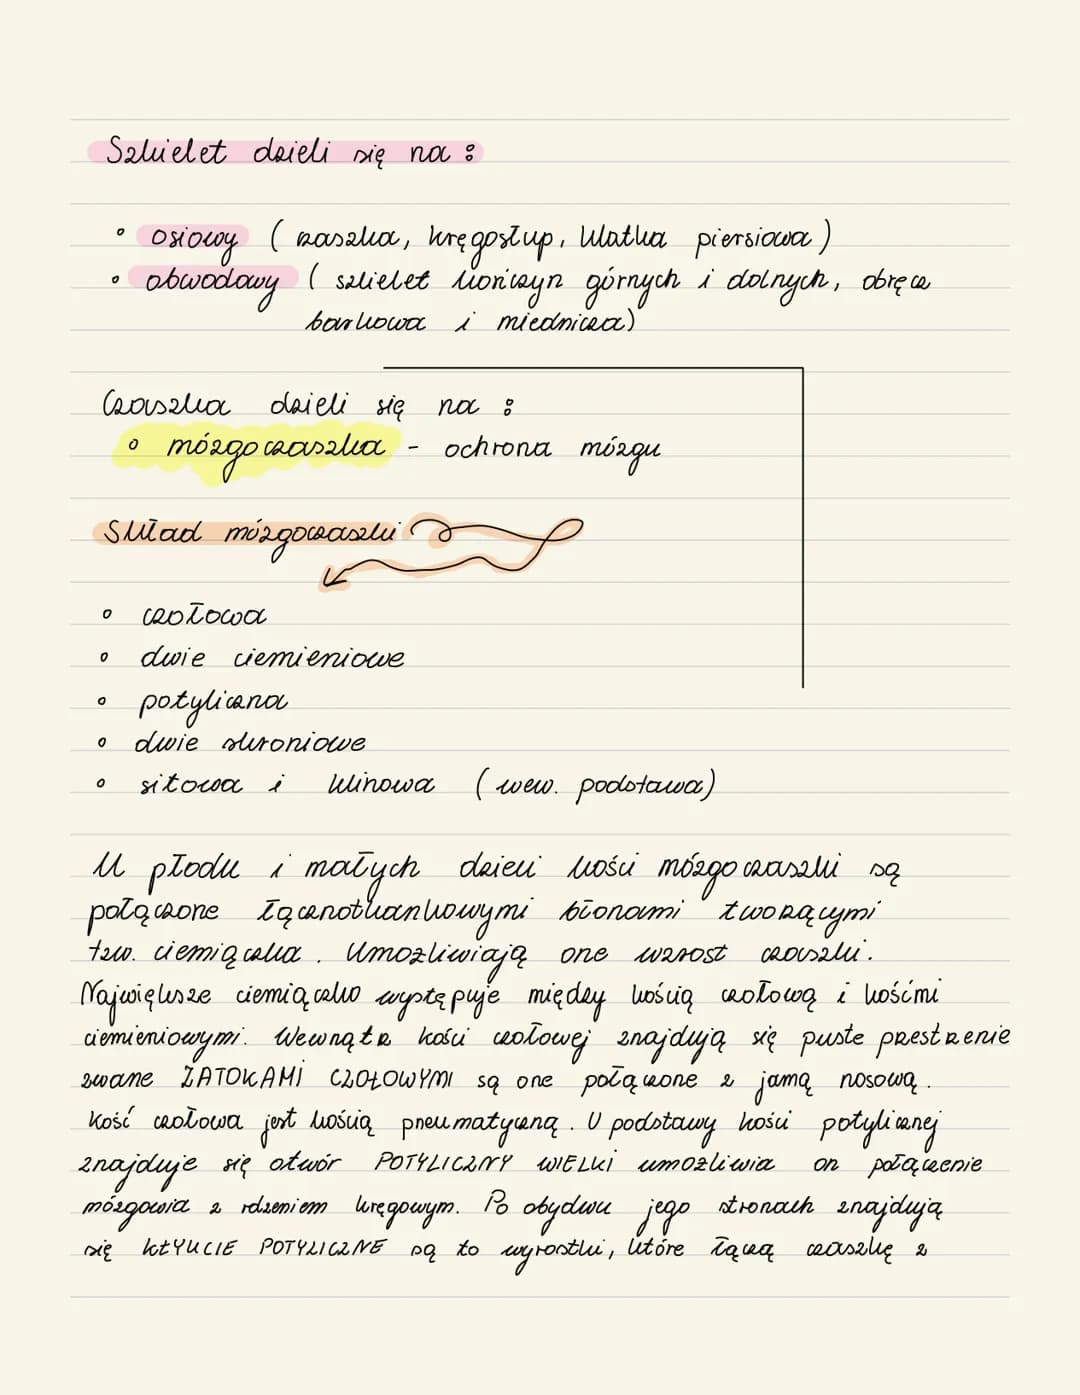 Szkielet dzieli się na :
• osiowy ( czaszka, kręgosłup, klatka piersiowa )
• obwodowy ( szkielet kończyn górnych i dolnych, obręcz
barkowa i miednicza)
Czaszka dzieli się na :
• mózgoczaszka - ochrona mózgu
Skład mózgoczaszki
• czołowa
• dwie ciemieniowe
• potyliczna
• dwie skroniowe
• sitowa i klinowa ( wew. podstawa)
U płodu i małych dzieci kości mózgoczaszki są
połączone łącznotkankowymi błonami tworzącymi
tzw. ciemiączka. Umożliwiają one wzrost czaszki.
Największe ciemiączko występuje między kością czołową i kośćmi
ciemieniowymi. Wewnątrz kości czołowej znajdują się puste przestrzenie
zwane ZATOKAMI CZOŁOWYMI są one połączone z jamą nosową.
Kość czołowa jest kością pneumatyczną. U podstawy kości potylicznej
znajduje się otwór POTYLICZNY WIELKI umożliwia on połączenie
mózgowia z rdzeniem kręgowym. Po obydwu jego stronach znajdują
się KŁYKCIE POTYLICZNE są to wyrostki, które łączą czaszkę z